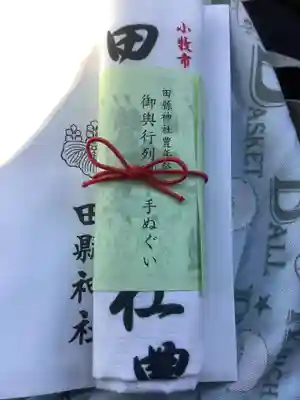 小牧市
田
田縣神社豊年祭
御輿行列
手ぬぐい
社
豊
田縣神社
BASKET
BALL